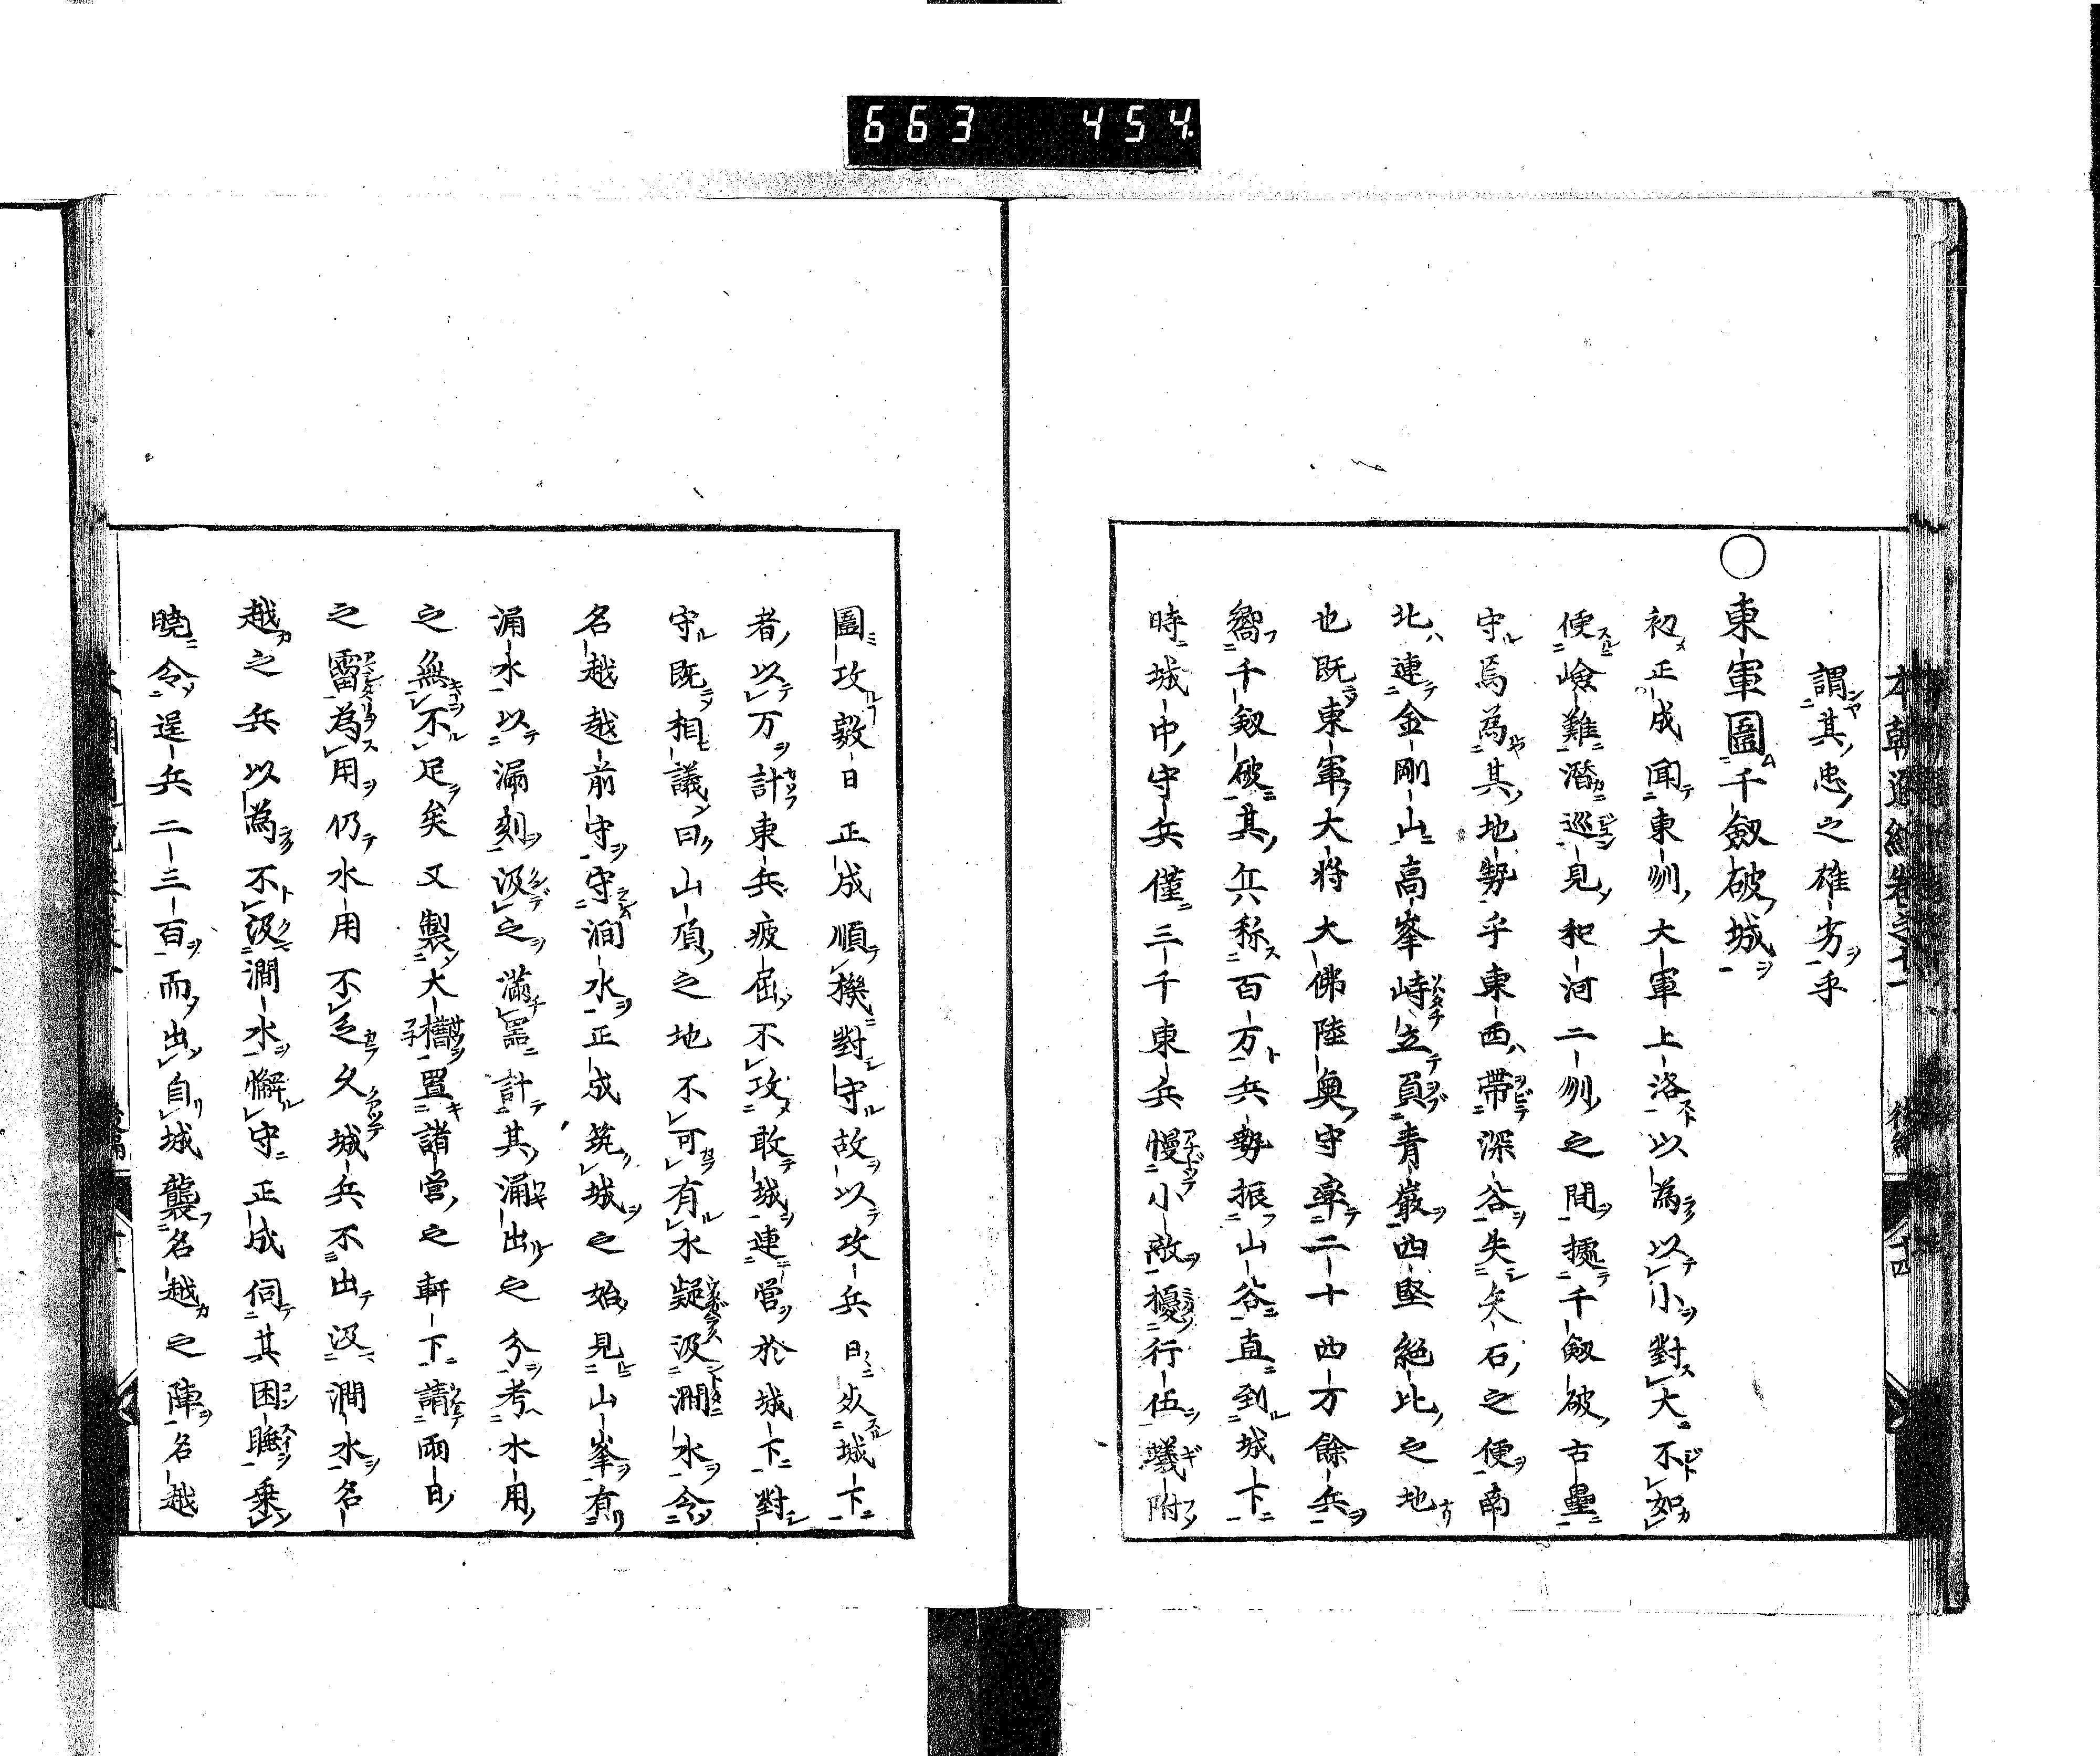 663 454
謂其忠之雄劣乎
○東軍圍千劔破城
初正成聞東州大軍上洛以為以小對大不如
便嶮難潛巡見和河二州之間據千劔破古壘
守焉為其地勢乎東西帶深谷失矢石之便南
北連金剛山高峯峙立負青巖四堅絕比之地
也既東軍大將大佛陸奥守率二十四万餘兵
嚮千劔破其兵称百万兵勢振山谷直到城下
時城中守兵僅三千東兵慢小敵擾行伍蟻附
圍攻數日正成順機對守故以攻兵日城下
者以万計東兵疲屈不攻敢城連營於城下對
守既相議曰山頂之地不可有水疑汲澗水令
名越越前守守澗水正成筑城之始見山峯有
涌水以漏刻汲之滿器計其涌出之分考水用
之無不足矣又製大槽置諸營之軒下請雨日
之霤為用仍水用不乏久城兵不出汲澗水名
越之兵以為不汲澗水懈守正成伺其困睡乗
曉令逞兵二三百而出自城襲名越之陣名越